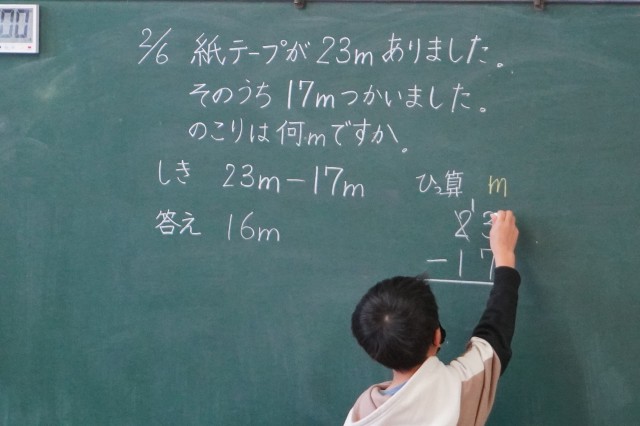 00
2/6 紙テープが23mありました。
そのうち17mつかいました。
のこりは何mですか。
しき 23m-17m
答え 16m
ひっ算 m
1
23
-17